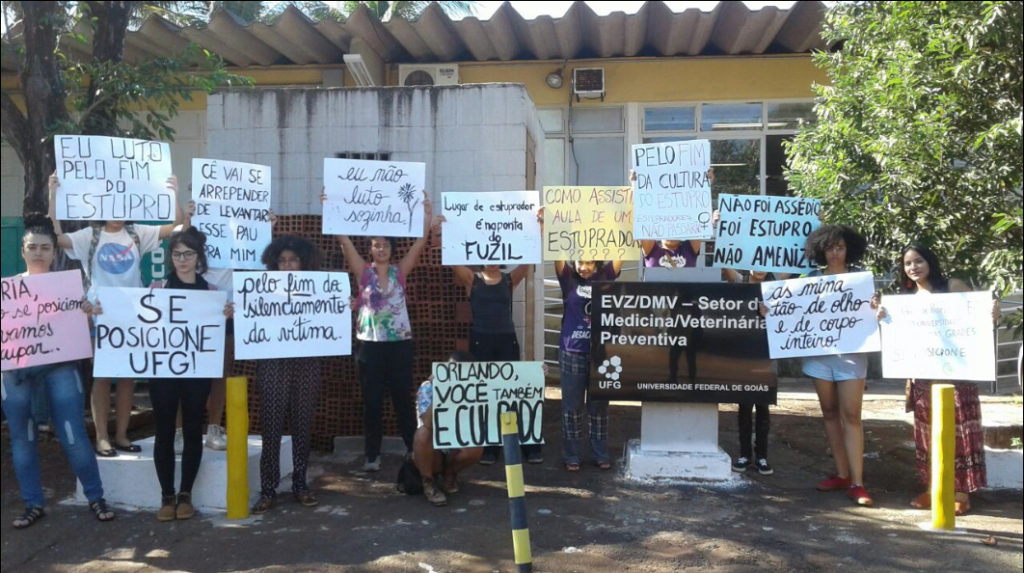 EU LUTO
PELO FIM
DO
ESTUPRO
CÊ VAI SE
ARREPENDER
DE LEVANTAR
ESSE PAU
PRA MIM
eu não
luto
sozinha
Lugar de estuprador
é na ponta do
FUZIL
COMO ASSISTI
AULA DE UM
ESTUPRADOR
????
PELO FIM
DA CULTURA
DO ESTUPRO
ESTUPRADORES
NÃO PASSARÃO
NÃO FOI ASSÉDIO
FOI ESTUPRO
NÃO AMENIZE
RIA,
SE POSICION
VAMOS
UPAR...
NASA
SE
POSICIONE
UFG!
pelo fim do
silenciamento
da vítima
ORLANDO,
VOCÊ TAMBÉM
É CULPADO
EVZ/DMV – Setor de
Medicina/Veterinária
Preventiva
UFG
UNIVERSIDADE FEDERAL DE GOIÁS
as mina
tão de olho
e de corpo
inteiro!
GRADES
POSICIONE